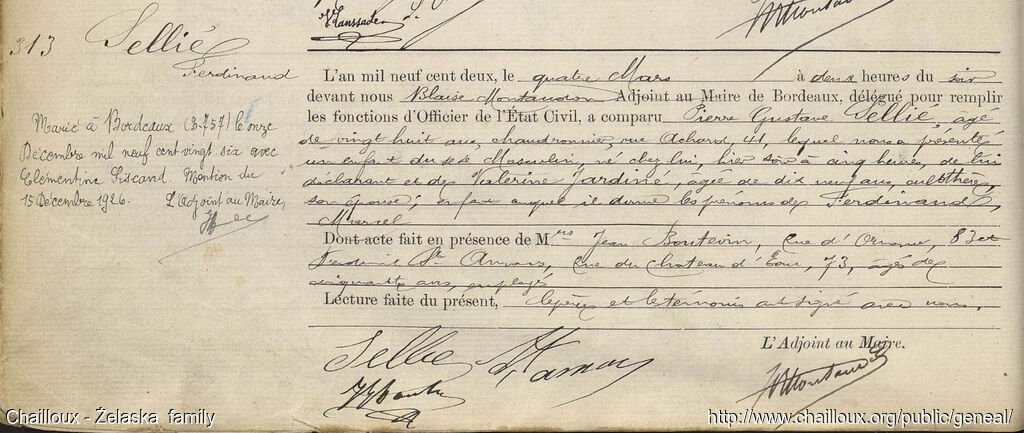 313 Sellié
Ferdinand
Marié à Bordeaux (B-757) le onze
Décembre mil neuf cent vingt six avec
Clémentine Siscand Mention du
15 Décembre 1926. L'Adjoint au Maire,
L'an mil neuf cent deux, le quatre Mars à deux heures du soir
devant nous Blaise Montaudon Adjoint au Maire de Bordeaux, délégué pour remplir
les fonctions d'Officier de l'État Civil, a comparu Pierre Gustave Sellié, âgé
de vingt huit ans, chaudronnier, rue Achard 41, lequel nous a présenté
un enfant du sexe Masculin, né chez lui, hier soir à cinq heures, de lui
déclarant et de Valérine Jardiné, âgée de dix neuf ans,
son épouse; enfant auquel il donne les prénoms de Ferdinand,
Marcel
Dont acte fait en présence de Mrs Jean Boutevin, rue d'Ornano, 83 et
St Amans, rue du château d'Eau, 73, âgés de
cinquante ans, employés
Lecture faite du présent, le père et les témoins ont signé avec nous.
L'Adjoint au Maire.
Sellié St Amans
Chailloux - Żelaska family
http://www.chailloux.org/public/geneal/